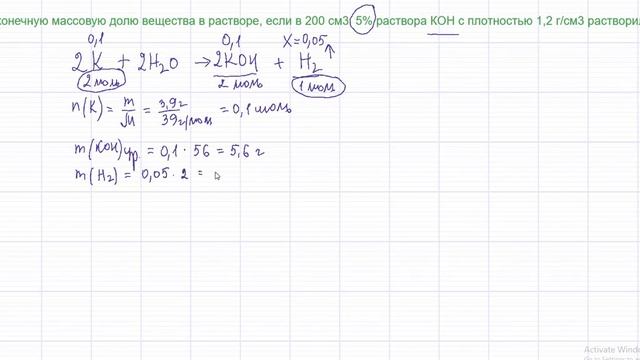 конечную массовую долю вещества в растворе, если в 200 см3 5% раствора КОН с плотностью 1,2 г/см3 растворил
0,1 0,1 X=0,05
2K + 2H₂O → 2KOH + H₂↑
2 моль 2 моль 1 моль
n(K) = m/M = 3,9г/39г/моль = 0,1 моль
m(KOH)ур. = 0,1 · 56 = 5,6 г
m(H₂) = 0,05 · 2 =
Activate Windo